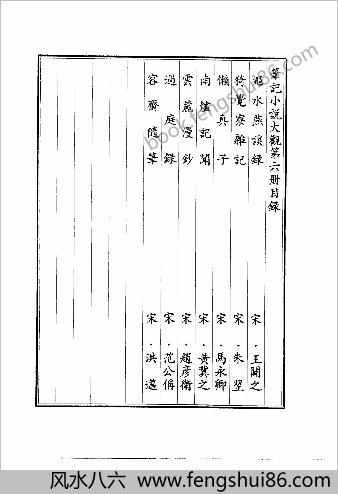 筆記小說大觀第六冊目錄
澠水燕談錄 宋.王闢之
猗覺寮雜記 宋.朱翌
懶真子 宋.馬永卿
南燼記聞 宋.黃冀之
雲麓漫鈔 宋.趙彥衛
過庭錄 宋.范公偁
容齋隨筆 宋.洪邁
book.fengshui86.com
风水八六 www.fengshui86.com